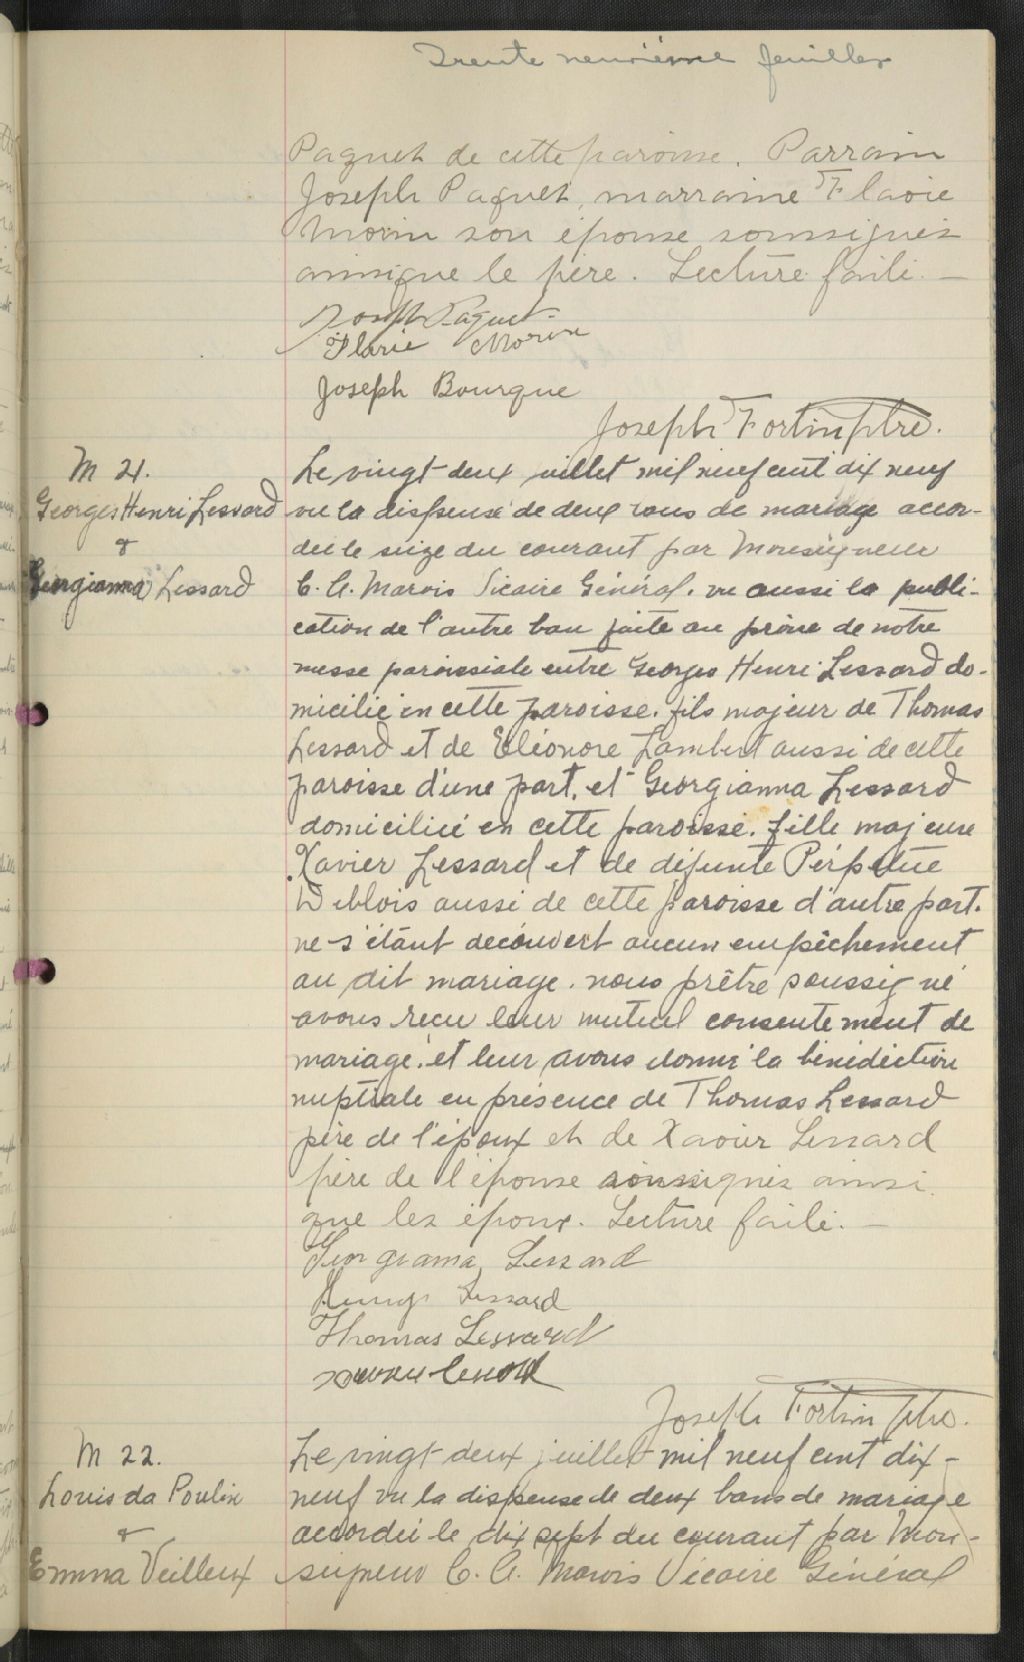 Trente neuvième feuillet
Paquet de cette paroisse. Parrain
Joseph Paquet, marraine Flavie
Morin son épouse soussignés
ainsique le père. Lecture faite. —
Joseph Paquet
Flavie Morin
Joseph Bourque
Joseph Fortin ptre.
M 21.
Georges Henri Lessard
&
Georgianna Lessard
Le vingt-deux juillet mil neuf cent dix neuf
vu la dispense de deux bans de mariage accor-
dée le seize du courant par Monseigneur
C. A. Marois Vicaire Général. vu aussi la publi-
cation de l'autre ban faite au prône de notre
messe paroissiale entre Georges Henri Lessard do-
micilié en cette paroisse. fils majeur de Thomas
Lessard et de Eléonore Lambert aussi de cette
paroisse d'une part. et Georgianna Lessard
domiciliée en cette paroisse. fille majeure
Xavier Lessard et de défunte Perpétue
Deblois aussi de cette paroisse d'autre part.
ne s'étant découvert aucun empêchement
au dit mariage. nous prêtre soussigné
avons reçu leur mutuel consentement de
mariage. et leur avons donné la bénédiction
nuptiale en présence de Thomas Lessard
père de l'époux et de Xavier Lessard
père de l'épouse soussignés ainsi
que les époux. Lecture faite. —
Georgianna Lessard
Henri Lessard
Thomas Lessard
Joseph Fortin Ptre.
M 22.
Louis da Poulin
&
Emma Veilleux
Le vingt-deux juillet mil neuf cent dix-
neuf vu la dispense de deux bans de mariage
accordée le dix sept du courant par Mon-
seigneur C. A. Marois Vicaire Général